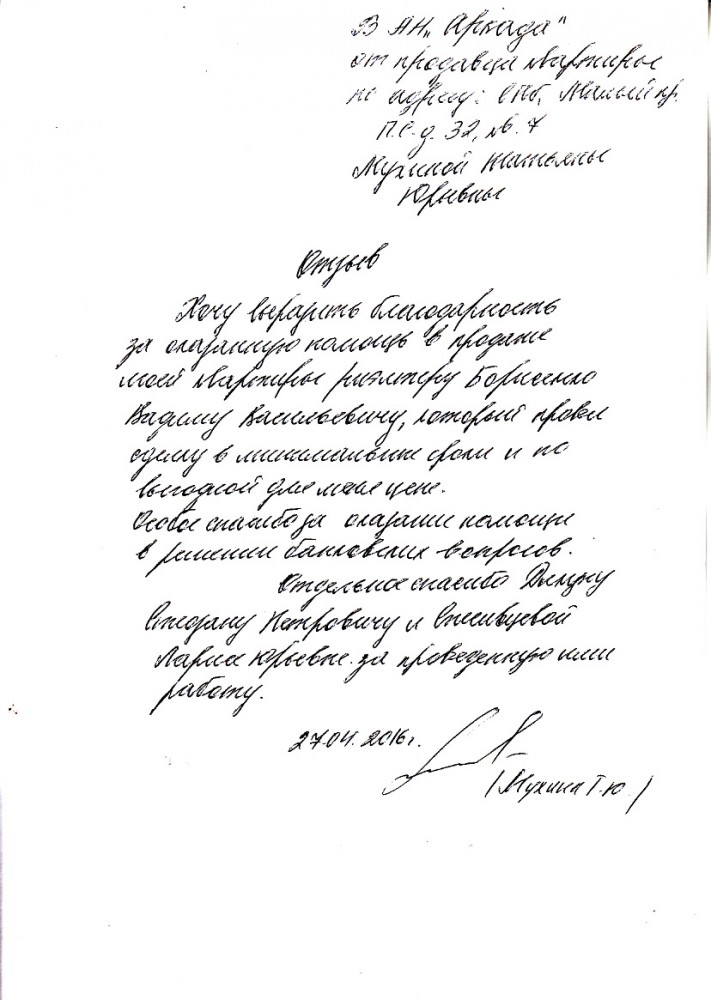 В АН „Аркада"
от продавца квартиры
по адресу: СПб, Малый пр.
П.С. д. 32, кв. 7
Мухиной Татьяны
Юрьевны
Отзыв
Хочу выразить благодарность
за оказанную помощь в продаже
моей квартиры риэлтеру Борисенко
Вадиму Васильевичу, который провел
сделку в минимальные сроки и по
выгодной для меня цене.
Особое спасибо за оказание помощи
в решении банковских вопросов.
Отдельное спасибо
Степану Петровичу и Спесивцевой
Ларисе Юрьевне за проведенную ими
работу.
27.04.2016г.
/Мухина Т.Ю./